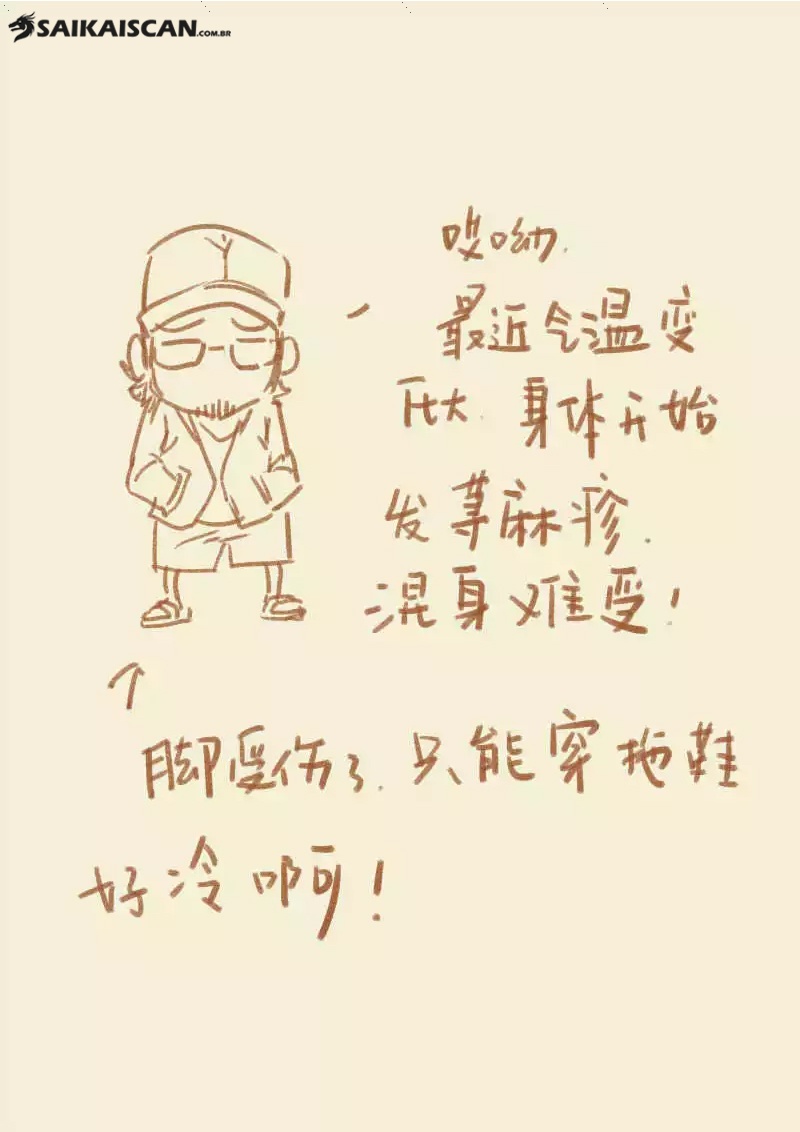 SAIKAISCAN.COM.BR
哎呦.
最近气温变
化大.身体开始
发荨麻疹.
混身难受!
脚受伤了.只能穿拖鞋
好冷啊!